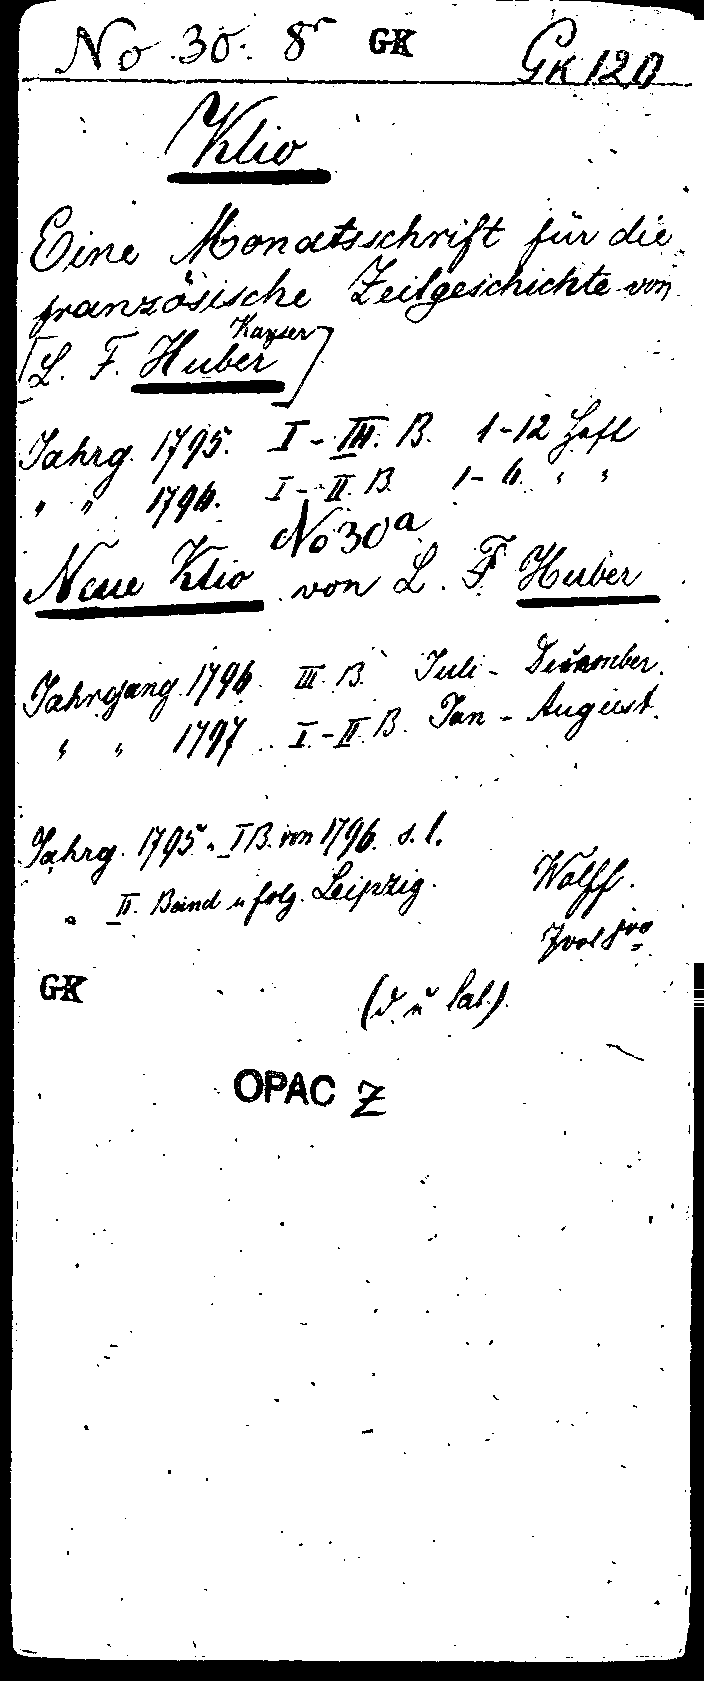 No 30. 8° GK GK 120
Klio
Eine Monatsschrift für die
französische Zeitgeschichte von
Kayser
[L. F. Huber]
Jahrg. 1795. I - III. B. 1-12 Heft
" " 1796. I - II. B. 1-6. " "
No 30a
Neue Klio von L. F. Huber
Jahrgang 1796 III B. Juli - December.
" " 1797 I.-II B. Jan - August.
Jahrg. 1795 " I B. von 1796. s. l.
" II. Band u folg. Leipzig.
Wolff.
GK
(d. u lat.)
OPAC Z